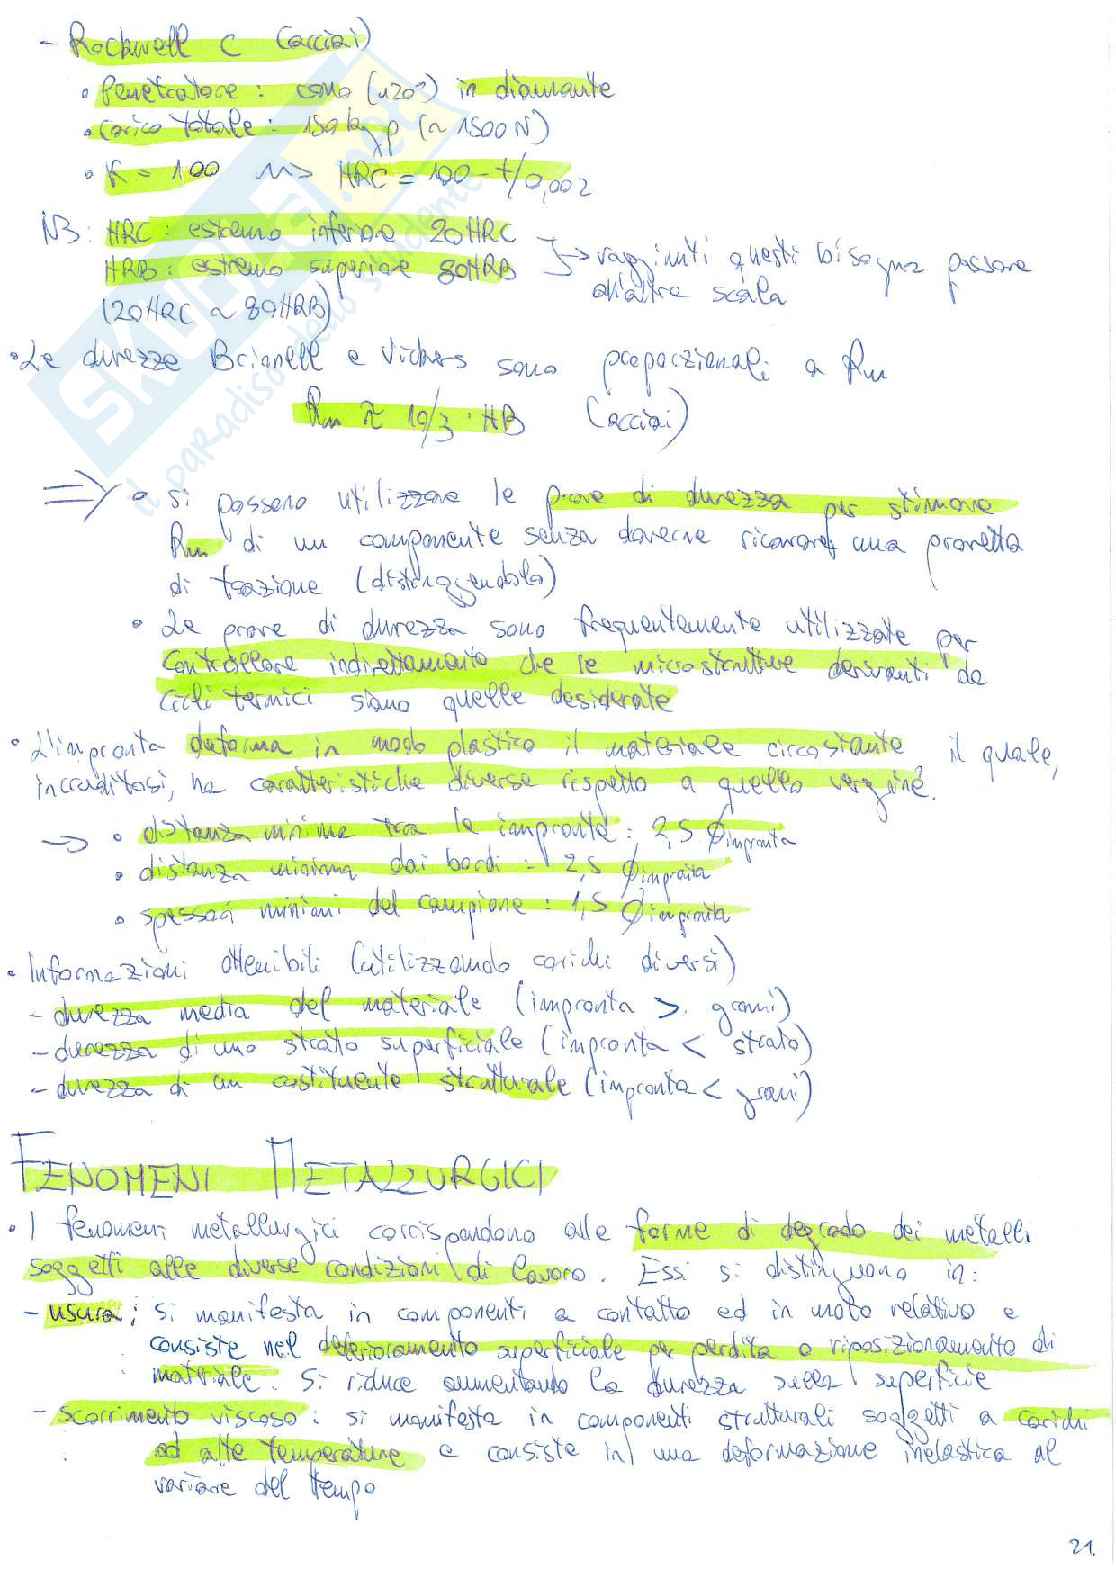 - Rockwell C (acciai)
• Penetratore : cono (120°) in diamante
• Carico totale : 150 kgp (~ 1500 N)
• K = 100 ~> HRC = 100 - t/0,002
NB: HRC : estremo inferiore 20 HRC
HRB : estremo superiore 80HRB → raggiunti questi bisogna passare
all'altra scala
(20HRC ~ 80HRB)
• Le durezze Brinell e Vickers sono proporzionali a Rm
Rm ≈ 10/3 · HB (acciai)
⇒ • si possono utilizzare le prove di durezza per stimare
Rm di un componente senza doverne ricavare una provetta
di trazione (distruggendolo)
• Le prove di durezza sono frequentemente utilizzate per
controllare indirettamente che le microstrutture derivanti da
cicli termici siano quelle desiderate
• L'impronta deforma in modo plastico il materiale circostante il quale,
incruditosi, ha caratteristiche diverse rispetto a quello vergine.
→ • distanza minima tra le impronte : 2,5 Ø impronta
• distanza minima dai bordi : 2,5 Ø impronta
• spessori minimi del campione : 1,5 Ø impronta
• Informazioni ottenibili (utilizzando carichi diversi)
- durezza media del materiale (impronta > grani)
- durezza di uno strato superficiale (impronta < strato)
- durezza di un costituente strutturale (impronta < grani)
FENOMENI METALLURGICI
• I fenomeni metallurgici corrispondono alle forme di degrado dei metalli
soggetti alle diverse condizioni di lavoro. Essi si distinguono in:
- usura : si manifesta in componenti a contatto ed in moto relativo e
consiste nel deterioramento superficiale per perdita o riposizionamento di
materiale. Si riduce aumentando la durezza della superficie
- scorrimento viscoso : si manifesta in componenti strutturali soggetti a carichi
ad alte temperature e consiste in una deformazione inelastica al
variare del tempo
21.
SKUOLA.net
il paradiso dello studente